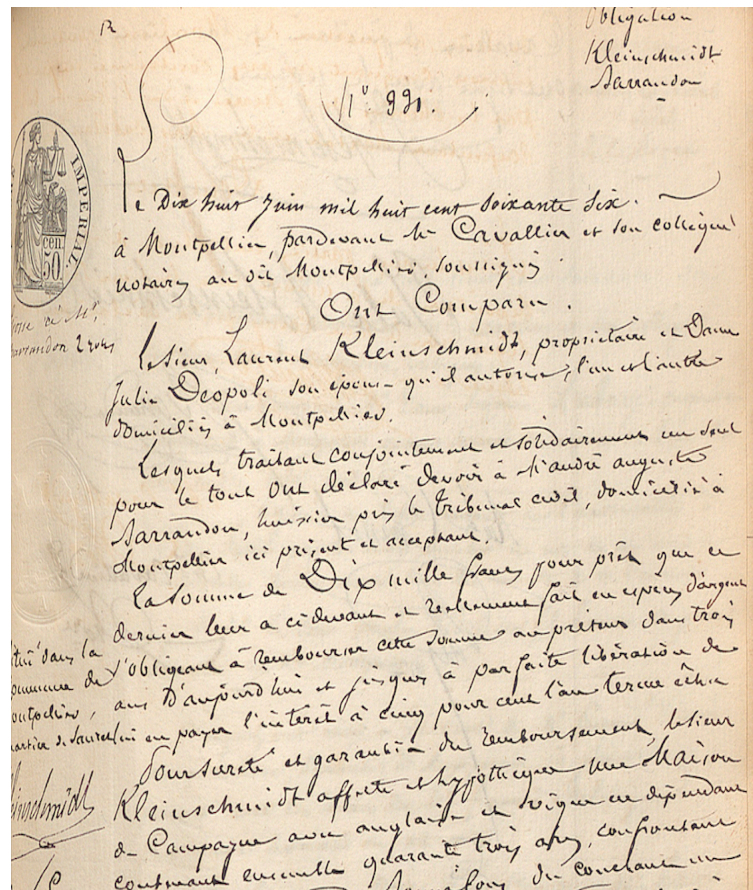 Obligation
Kleinschmidt
Sarrandon
N° 990.
Le Dix huit Juin mil huit cent soixante six.
à Montpellier, pardevant Me Cavallier et son collègue
notaires au dit Montpellier, soussignés
Ont Comparu.
Le Sieur, Laurent Kleinschmidt, propriétaire et Dame
Julie Deopoli son épouse qu'il autorise, l'un et l'autre
domiciliés à Montpellier.
Lesquels traitant conjointement et solidairement un seul
pour le tout Ont déclaré devoir à M. andré auguste
Sarrandon, huissier près le tribunal civil, domicilié à
Montpellier ici présent et acceptant.
La Somme de Dix mille francs pour prêt que ce
dernier leur a ci devant et réellement fait en espèces d'argent
s'obligeant à rembourser cette somme au prêteur dans trois
ans D'aujourd'hui et jusques à parfaite libération de
lui en payer l'intérêt à cinq pour cent l'an terme échu
Pour sureté et garantie du remboursement, le sieur
Kleinschmidt affecte et hypothèque une Maison
de Campagne avec anglaise et vigne en dépendant
contenant ensemble quarante trois ares, confrontant
du couchant
IMPERIAL.
50 cen.
Sarrandon
situé dans la
commune de
Montpellier,
quartier de
Kleinschmidt